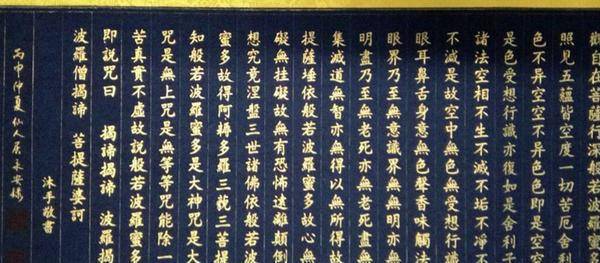 觀自在菩薩行深般若波
照見五蘊皆空度一切苦厄舍利
色不异空空不异色色即是空
是色受想行識亦復如是舍利子
諸法空相不生不滅不垢不淨不
不減是故空中無色無受想行識
眼耳鼻舌身意無色聲香味觸法
眼界乃至無意識界無無明亦無
明盡乃至無老死亦無老死盡無
集滅道無智亦無得以無所得故
提薩埵依般若波羅蜜多故心無
礙無挂礙故無有恐怖遠離顛倒
想究竟涅盤三世諸佛依般若波
蜜多故得阿耨多羅三藐三菩提
知般若波羅蜜多是大神咒是大
咒是無上咒是無等等咒能除一
苦真實不虛故說般若波羅蜜多
即說咒曰 揭諦揭諦 波羅揭
波羅僧揭諦 菩提薩婆訶
沐手敬書
丙申仲夏仙人居